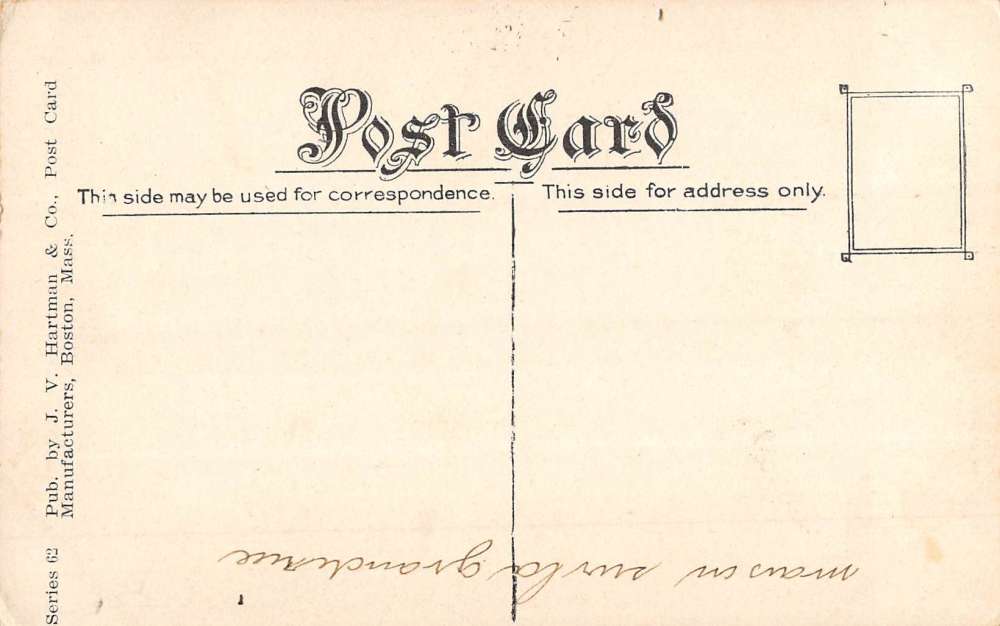 Post Card
This side may be used for correspondence.
This side for address only.
Series 62 Pub. by J. V. Hartman & Co., Post Card
Manufacturers, Boston, Mass.
maison sur la grandrue